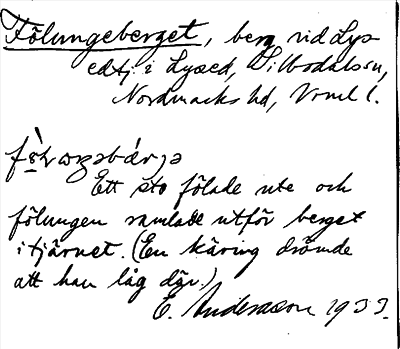 Fölungeberget, berg vid Lys-
edtj. i Lysed, Silbodals sn,
Nordmarks hd, Vrml l.
Ett sto fölade ute och
fölungen ramlade utför berget
i tjärnet. (En käring drömde
att han låg där.)
E. Andersson 1933.